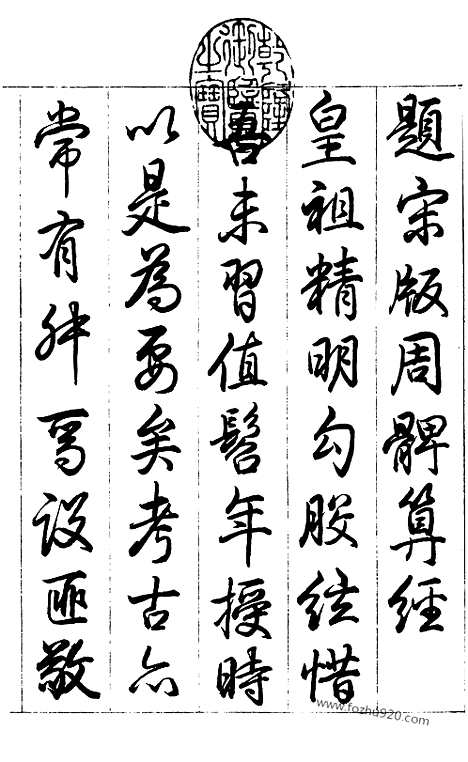 題宋版周髀算經
皇祖精明勾股絃惜
吾未習值髫年授時
以是為要矣考古亦
常有舛焉設匪敬
乾隆御覽之寶
www.fozhu920.com